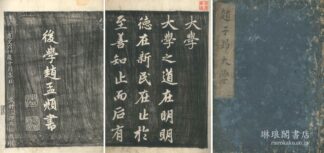 趙子昂大學
大學
大學之道在明明
德在新民在止於
至善知止而后有
後學趙孟頫書
琳琅閣書店
rinrokaku.co.jp